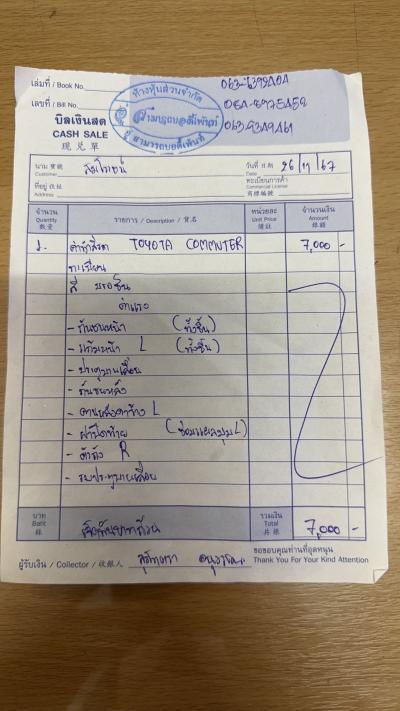 เล่มที่ / Book No.
เลขที่ / Bill No.
ห้างหุ้นส่วนจำกัด
สามารถบอดี้เพ้นท์
บิลเงินสด
CASH SALE
現兑單
นาม 寶號
Customer
วันที่ 日期 26/11/67
Date
ที่อยู่ 住址
Address
ทะเบียนการค้า
Commercial License
商標編號
จำนวน
Quantity
數量
รายการ / Description / 貨名
หน่วยละ
Unit Price
價註
จำนวนเงิน
Amount
銀額
1. TOYOTA COMMUTER 7,000 -
ทะเบียน
สี บรอนซ์
ค่าแรง
- กันชนหน้า (ทั้งชิ้น)
- แก้มหน้า L (ทั้งชิ้น)
- ประตูบานเลื่อน
- กันชนหลัง
- ฝาปิดท้าย (ซ่อมแผลมุม L)
- ตัวถัง R
- บานเลื่อน
บาท
Baht
銖
เจ็ดพันบาทถ้วน
รวมเงิน
Total
共銀
7,000 -
ผู้รับเงิน / Collector / 收銀人
ขอขอบคุณท่านที่อุดหนุน
Thank You For Your Kind Attention